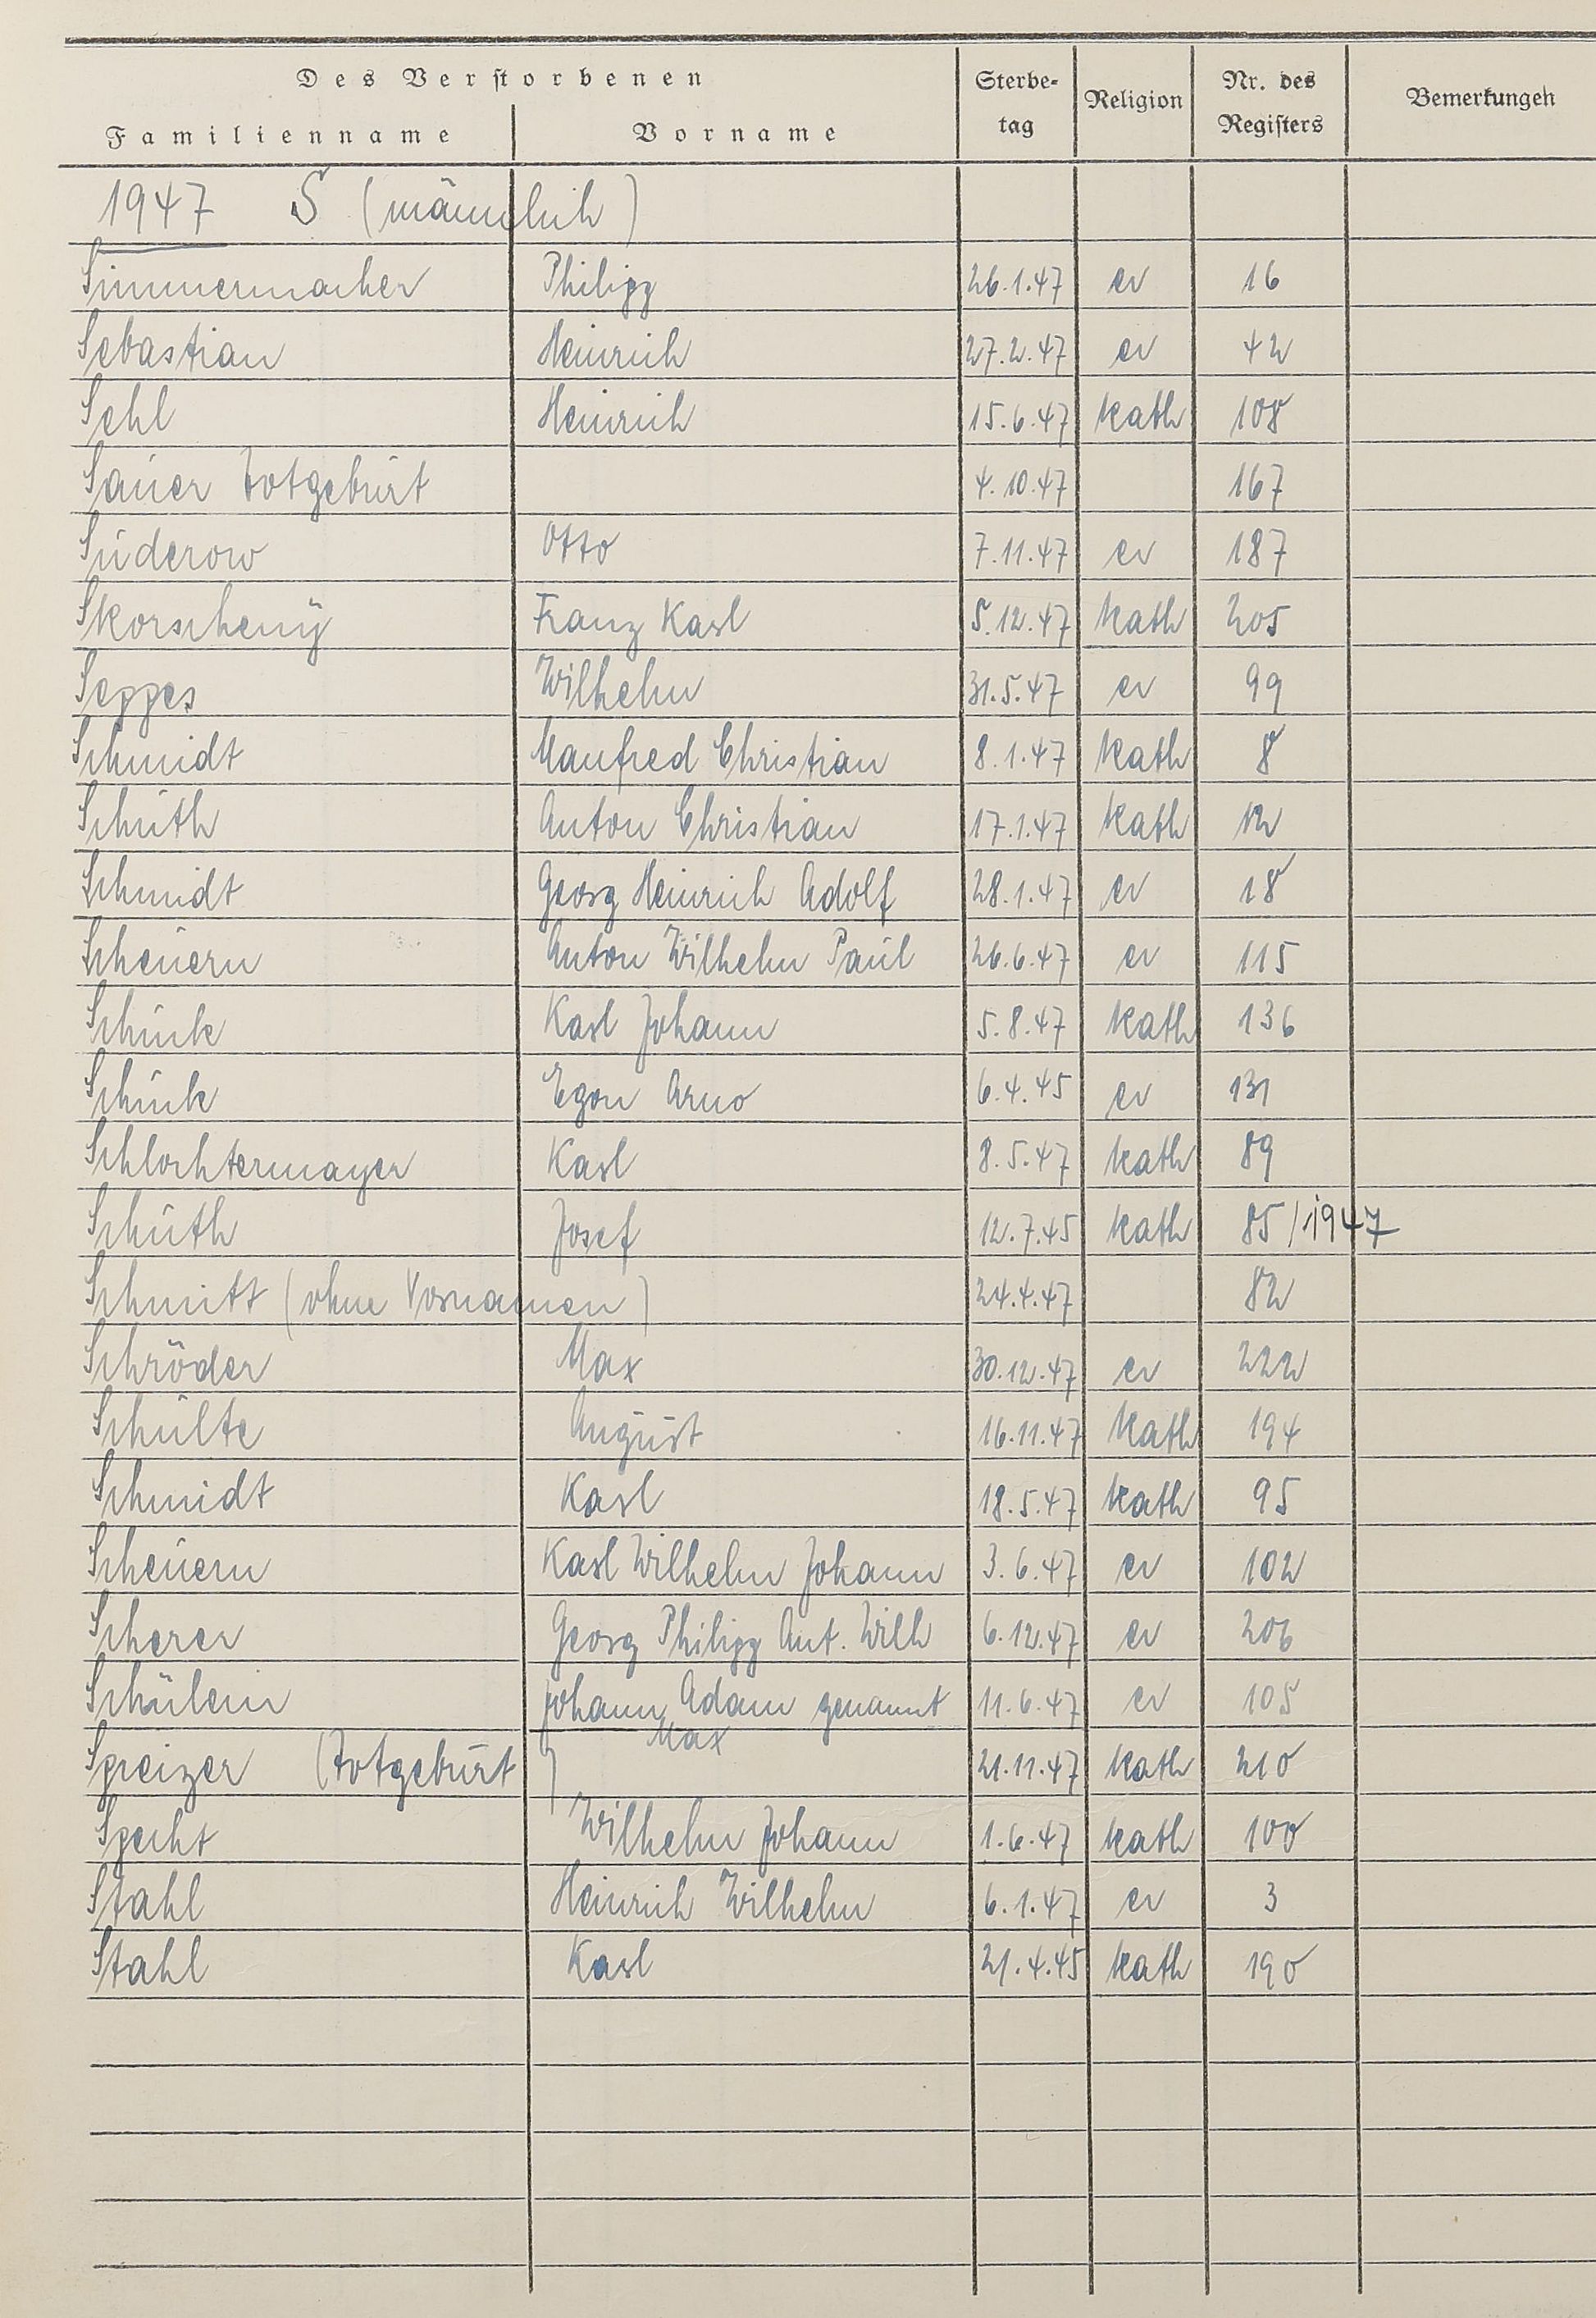 Des Verstorbenen
Familienname Vorname Sterbe-tag Religion Nr. des Registers Bemerkungen
1947 S (männlich)
Simmermacher Philipp 26.1.47 ev 16
Sebastian Heinrich 27.2.47 ev 42
Sehl Heinrich 15.6.47 kath 108
Sauer Totgeburt 4.10.47 167
Suderow Otto 7.11.47 ev 187
Skorscheny Franz Karl 5.12.47 kath 205
Seppes Wilhelm 31.5.47 ev 99
Schmidt Manfred Christian 8.1.47 kath 8
Schuth Anton Christian 17.1.47 kath 12
Schmidt Georg Heinrich Adolf 28.1.47 ev 18
Scheuern Anton Wilhelm Paul 26.6.47 ev 115
Schunk Karl Johann 5.8.47 kath 136
Schunk Egon Arno 6.4.45 ev 131
Schlochtermayer Karl 8.5.47 kath 89
Schuth Josef 12.7.45 kath 85/1947
Schmitt (ohne Vornamen) 24.4.47 82
Schröder Max 30.12.47 ev 222
Schulte August 16.11.47 kath 194
Schmidt Karl 18.5.47 kath 95
Scheuern Karl Wilhelm Johann 3.6.47 ev 102
Scherer Georg Philipp Ant. Wilh 6.12.47 ev 206
Schülein Johann Adam genannt 11.6.47 ev 105
Max
Spreizer (Totgeburt) 21.11.47 kath 210
Specht Wilhelm Johann 1.6.47 kath 100
Stahl Heinrich Wilhelm 6.1.47 ev 3
Stahl Karl 21.4.45 kath 190